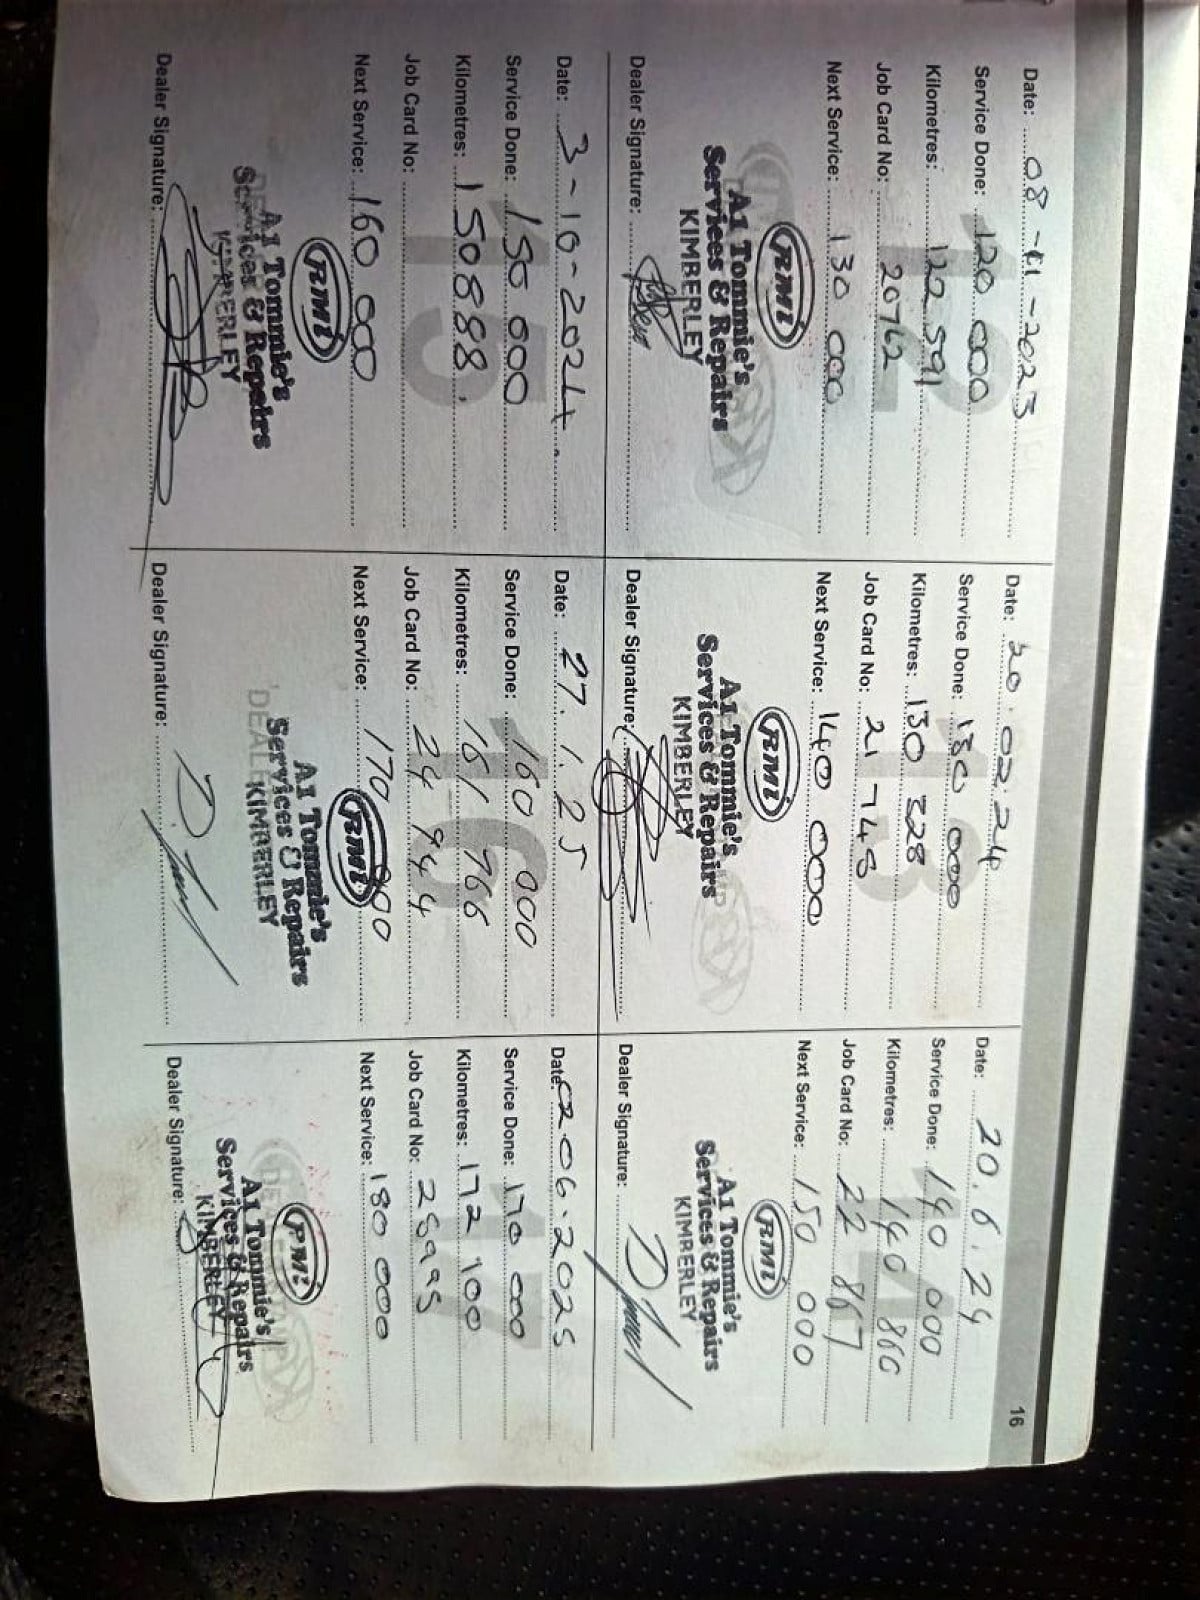 16
12
Date: 08-11-2023
Service Done: 120 000
Kilometres: 122 591
Job Card No: 20762
Next Service: 130 000
RMI
A1 Tommie's
Services & Repairs
KIMBERLEY
Dealer Signature:
13
Date: 20.02.24
Service Done: 130 000
Kilometres: 130 328
Job Card No: 21748
Next Service: 140 000
RMI
A1 Tommie's
Services & Repairs
KIMBERLEY
Dealer Signature:
14
Date: 20.6.24
Service Done: 140 000
Kilometres: 140 860
Job Card No: 22 867
Next Service: 150 000
RMI
A1 Tommie's
Services & Repairs
KIMBERLEY
Dealer Signature:
15
Date: 3-10-2024
Service Done: 150 000
Kilometres: 150888.
Job Card No:
Next Service: 160 000
RMI
A1 Tommie's
Services & Repairs
KIMBERLEY
Dealer Signature:
16
Date: 27.1.25
Service Done: 160 000
Kilometres: 161 766
Job Card No: 24 944
Next Service: 170 000
RMI
A1 Tommie's
Services & Repairs
KIMBERLEY
Dealer Signature:
17
Date: 02.06.2025
Service Done: 170 000
Kilometres: 172 100
Job Card No:
Next Service: 180 000
RMI
A1 Tommie's
Services & Repairs
KIMBERLEY
Dealer Signature: